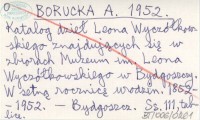 BORUCKA A. 1952.
Katalog dzieł Leona Wyczółkow-
skiego znajdujących się w
zbiorach Muzeum im. Leona
Wyczółkowskiego w Bydgoszczy.
W setną rocznicę urodzin 1852-
-1952. - Bydgoszcz. Ss. 111, tab
lice.